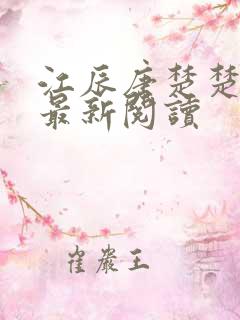 江辰唐楚楚
最新閱讀
崔嚴王